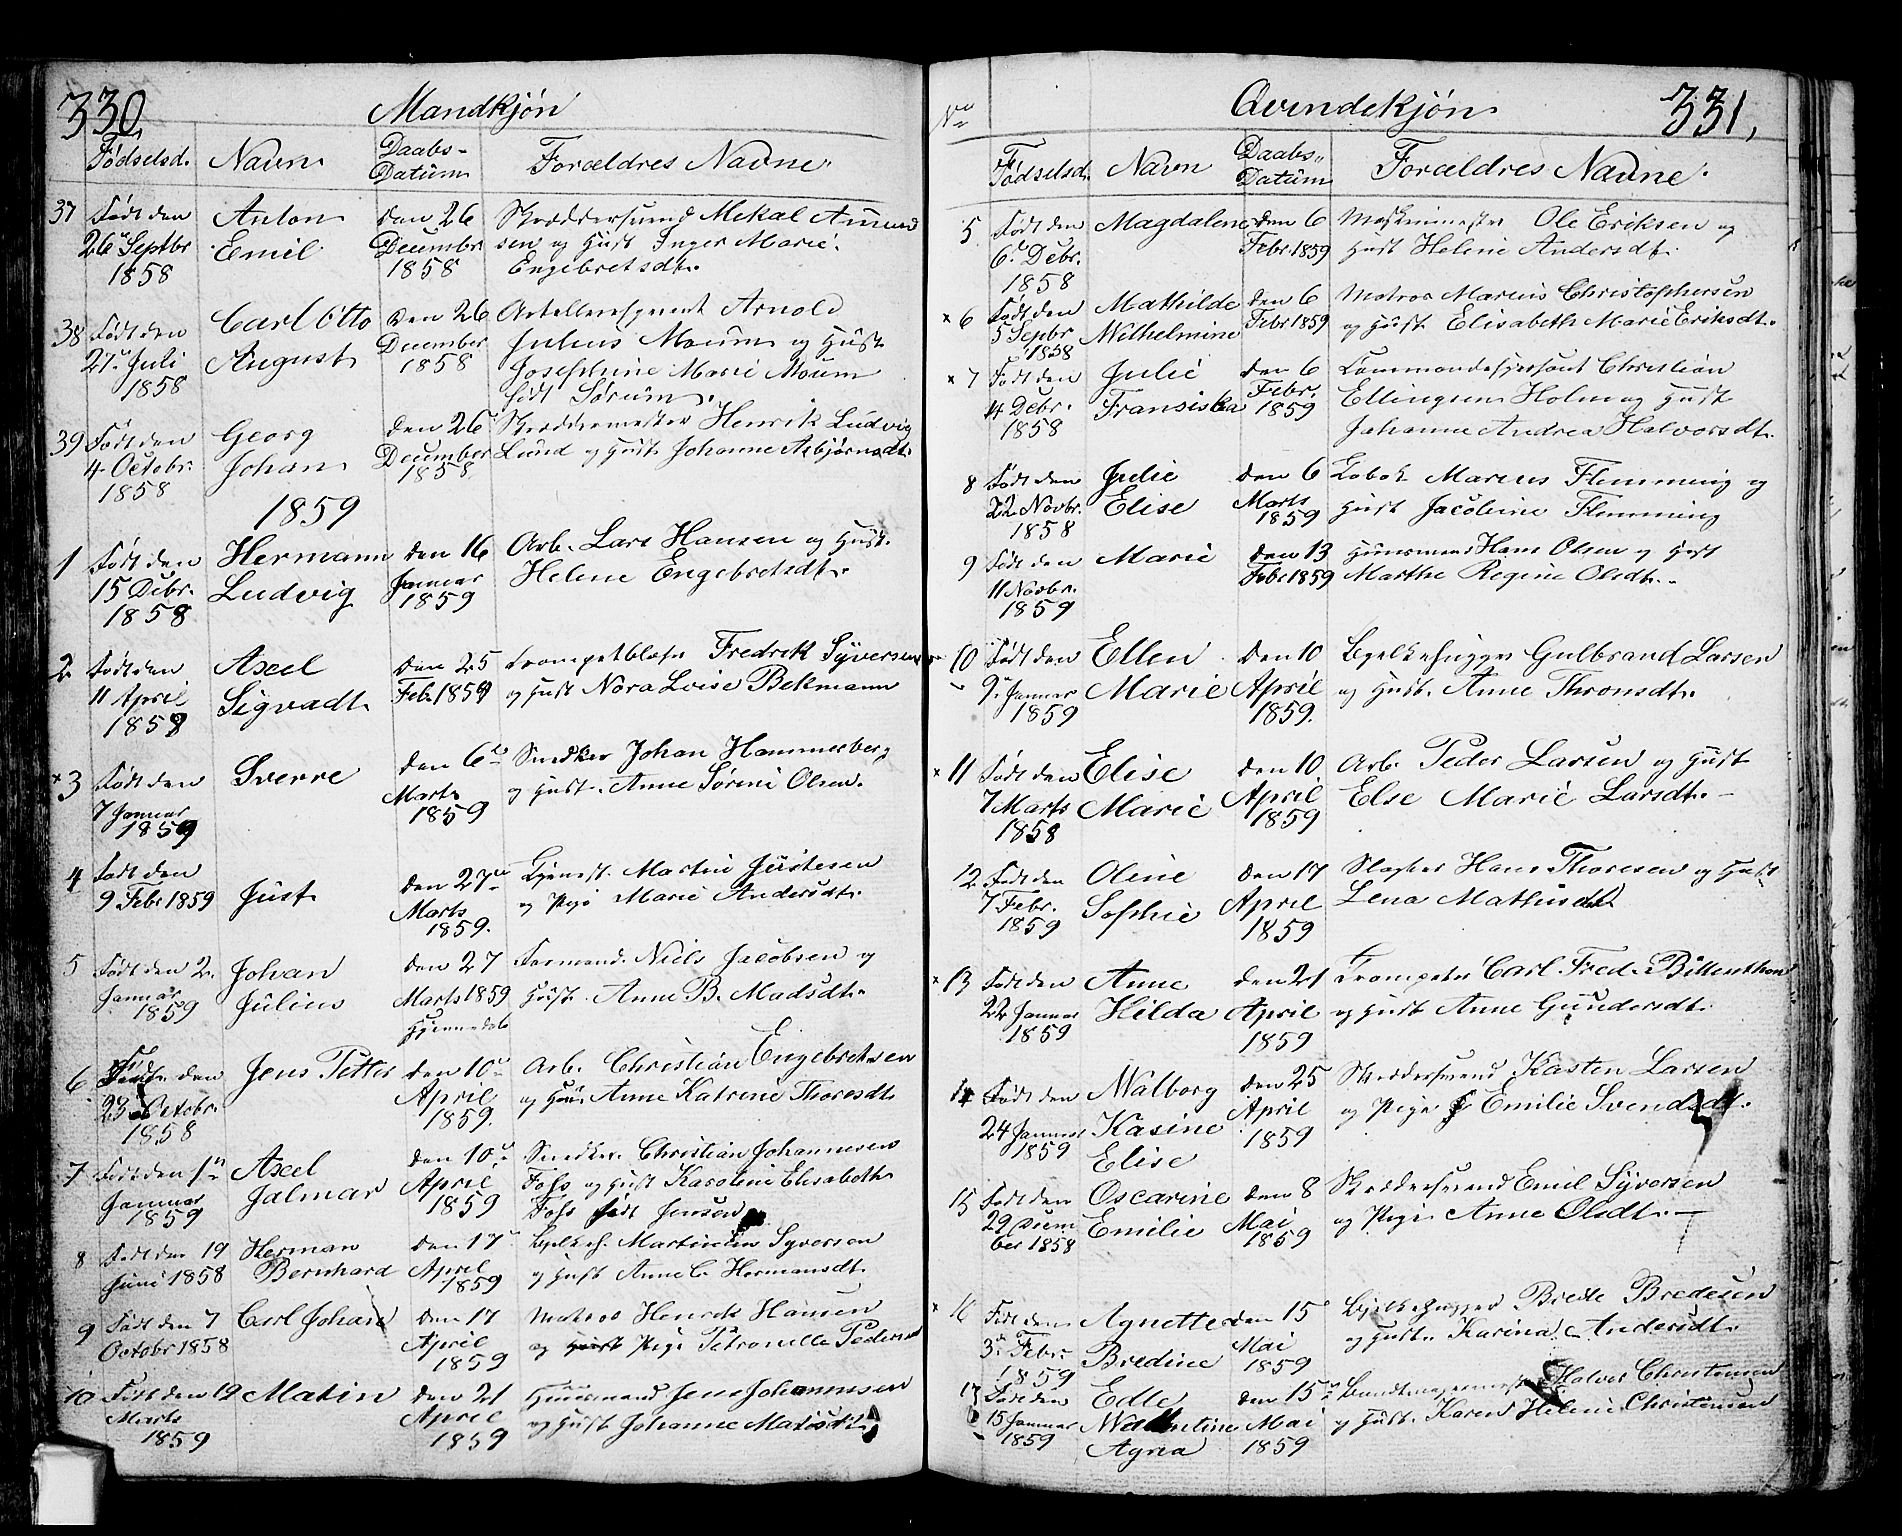 330
Mandkjøn
Fødselsd. Navn Daabs- Datum Forældres Navne
37 Født den 26 Septbr 1858 Anton Emil den 26 Decembr 1858 Skræddersvend Mekal Amund
sen og Hust Inger Marie
Engebretsdt.
38 Født den 27 Juli 1858 Carl Otto August den 26 December 1858 Arnold
Julius Moum og Hust
Josephine Marie Moum
født Sørum.
39 Født den 4 Octobr. 1858 Georg Johan den 26 December 1858 Skræddermester Henrik Ludvig
Lund og Hust Johanne Asbjørnsdt.
1859
1 Født den 15 Debr. 1858 Hermann Ludvig den 16 Januar 1859 Arb. Lars Hansen og Hust.
Helene Engebretsdt.
2 Født den 11 April 1858 Axel Sigvadt den 25 Feb. 1859 Trompetblæser Fredrik Syversen
og Hust Nora Lvise Bekmann
3 Født den 7 Januar 1859 Sverre den 6 Marts 1859 Snedker Johan Hammerberg
og Hust. Anne Sørine Olsen.
4 Født den 9 Febr 1859 Just den 27 Marts 1859. Tjenest. Martin Justesen
og Pige Marie Andersdt.
5 Født den 2. Januar 1859 Johan Julius den 27 Marts 1859 Hjemmedøb Formand. Niels Jacobsen og
Hust. Anne B. Madsdt.
6 Født den 23 Octobr. 1858 Jens Petter den 10 April 1859. Arb. Christian Engebretsen
og Hus. Anne Katrine Thoresdt.
7 Født den 1 Januar 1859 Axel Jalmar den 10 April 1859 Snedker. Christian Johannesen
Foss og Hust Karoline Elisabeth
Foss født Jensen
8 Født den 19 Juni 1858 Herman Bernhard den 17 April 1859 Bjelkeh. Martinius Syversen
og Hust Anne C. Hermansdt.
9 Født den 7 Octobr 1858 Carl Johan den 17 April 1859 Matros Henrik Hansen
og Pige Petronelle Peders
10 Født den 19 Marts 1859 Matin den 21 April 1859 Huusmand Jens Johannesen
og Hust Johanne Matisdt.
No
Qvindekjøn
331,
Fødselsd. Navn Daabs- Datum Forældres Navne.
5 Født den 6 Debr. 1858 Magdalene den 6 Febr 1859 Maskinmester Ole Eriksen og
Hust Helene Andersdt.
× 6 Født den 5 Sepbr 1858 Mathilde Wilhelmine den 6 Febr 1859 Matros Marius Christophersen
og Hust Elisabeth Marie Eriksdt.
× 7 Født den 4 Debr. 1858 Julie Fransiska den 6 Febr. 1859 Commandersersant Christian
Ellingsen Holm og Hust
Johanne Andrea Halvorsdt.
8 Født den 22 Novbr. 1858 Julie Elise den 6 Marts 1859 Marius Flemming og
Hust Jacobine Flemming
9 Født den 11 Novbr. 1859 Marie den 13 Febr 1859 Huusmand Hans Olsen og Hust
Marthe Regine Olsdt.
10 Født den 9 Januar 1859 Ellen Marie Den 10 April 1859. Bjelkehugger Gulbrand Larsen
og Hust. Anne Thronsdt.
× 11 Født den 7 Marts 1858 Elise Marie den 10 April 1859 Arb. Peder Larsen og Hust
Else Marie Larsdt.
12 Født den 7 Febr. 1859 Oline Sophie den 17 April 1859 Slagter Hans Thoresen og Hust
Lena Mathisdt
× 13 Født den 22 Januar 1859 Anne Hilda den 21 April 1859 Trompeter Carl Fred. Billenthon
og Hust Anne Gundersdt.
14 Født den 24 Januar 1859 Walborg Kasine Elise den 25 April 1859 Skreddersvend Kasten Larsen
og Pige Emilie Svendsdt.
15 Født den 29 Decem ber 1858 Oscarine Emilie den 8 Mai 1859 Skræddersvend Emil Syversen
og Pige Anne Olsdt.
× 16 Født den 3 Febr. 1859 Agnette Bredine den 15 Mai 1859 Bjelkehugger Brede Bredesen
og Hust. Karina Andersdt.
17 Født den 15 Januar 1859 Edle Walentine Agna den 15 Mai 1859 Bundtmagermester Halvor Christensen
og Hust. Karen Helene Christensen